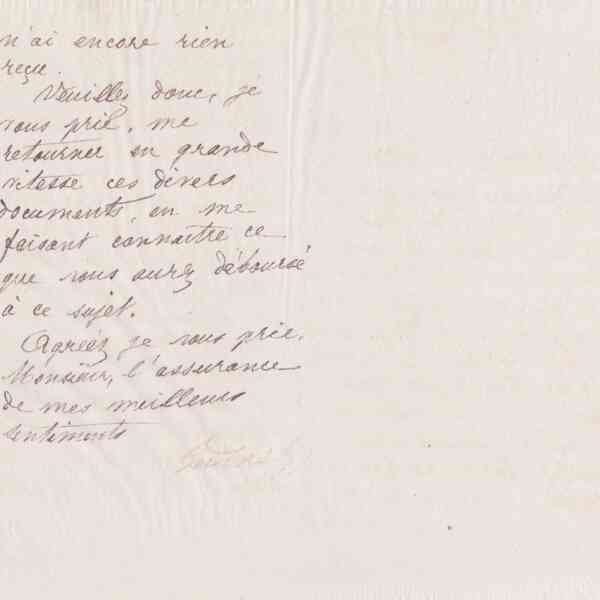 n'ai encore rien
reçu.
Veuillez donc, je
vous prie, me
retourner en grande
vitesse ces divers
documents, en me
faisant connaître ce
que vous aurez déboursé
à ce sujet.
Agréez je vous prie,
Monsieur, l'assurance
de mes meilleurs
sentiments